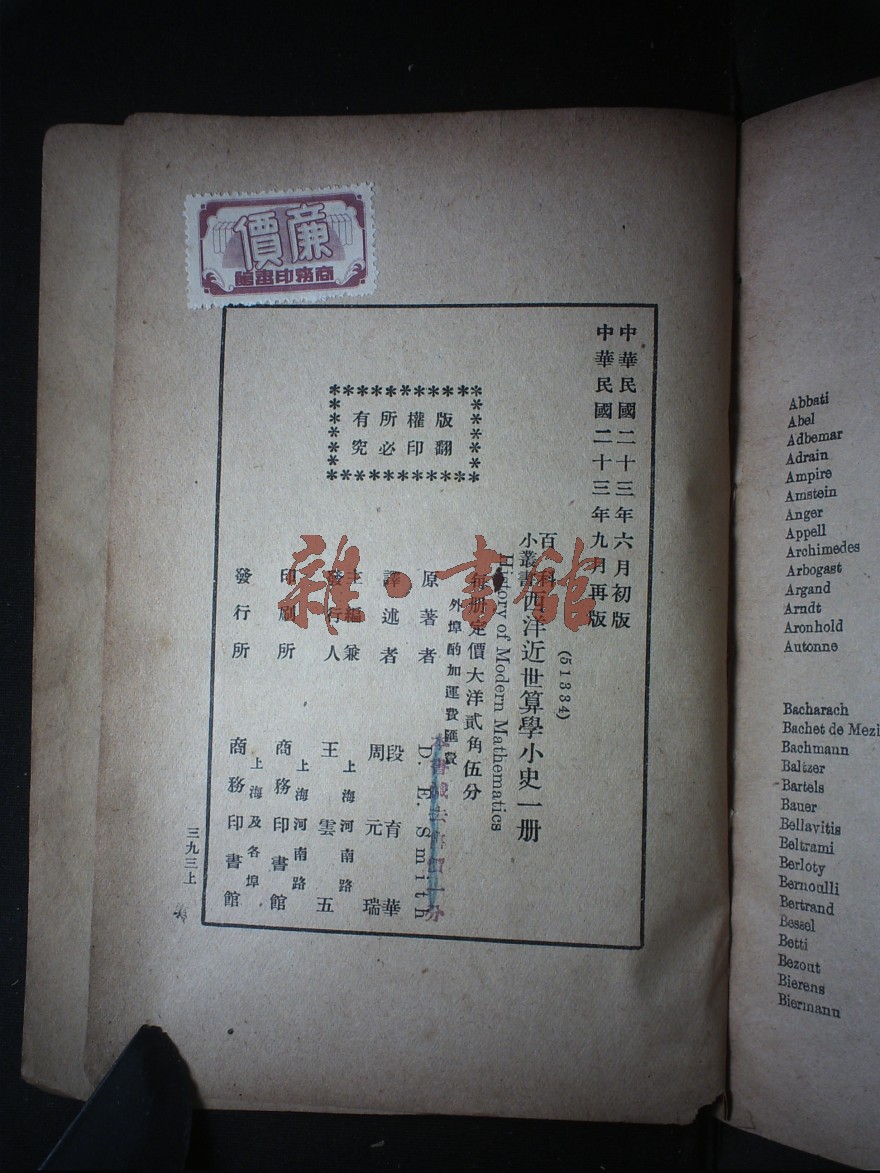 廉價
商務印書館
中華民國二十三年六月初版
中華民國二十三年九月再版
版權所有
翻印必究
(51334)
百科小叢書 西洋近世算學小史一册
History of Modern Mathematics
每册定價大洋貳角伍分
外埠酌加運費匯費
原著者 D. E. Smith
譯述者 段育華 周元瑞
主編兼發行人 王雲五 上海河南路
印刷所 商務印書館 上海河南路
發行所 商務印書館 上海及各埠
三九三上
雜·書館
Abbati
Abel
Adhemar
Adrain
Ampire
Amstein
Anger
Appell
Archimedes
Arbogast
Argand
Arndt
Aronhold
Autonne
Bacharach
Bachet de Mezi
Bachmann
Baltzer
Bartels
Bauer
Bellavitis
Beltrami
Berloty
Bernoulli
Bertrand
Bessel
Betti
Bezout
Bierens
Biermann